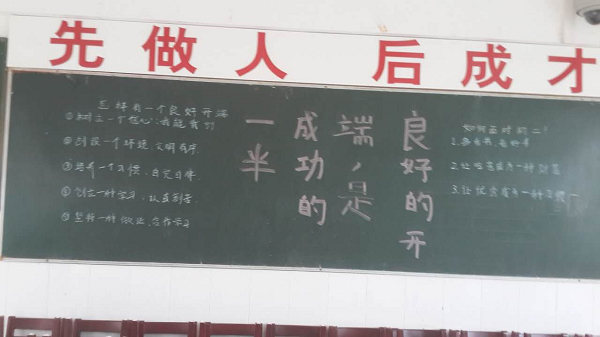 先做人 后成才
怎样有一个良好开端
①树立一个信心:我能行!
②创设一个环境 文明有序
③培养一个习惯,自觉自律
一种学习,认真刻苦
⑤坚持一种做法,合作学习
良好的开
端,是
成功的
一半
如何面对初二!
2.让吃苦成为一种财富
3.让优秀成为一种习惯